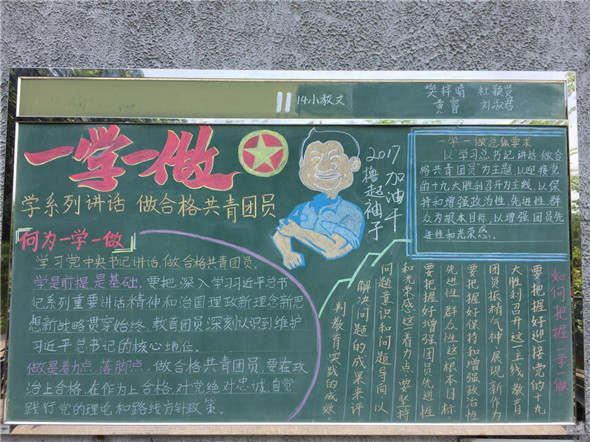 11
14小教文
樊梓晴 杜颖贤
黄霄 刘淑芳
一学一做
学系列讲话 做合格共青团员
何为一学一做
学习党中央书记讲话,做合格共青团员。
学是前提是基础。要把深入学习习近平总书
记系列重要讲话精神和治国理政新理念新思
想新战略贯穿始终,教育团员深刻认识到维护
习近平总书记的核心地位。
做是着力点、落脚点。做合格共青团员,要在政
治上合格,在作为上合格,对党绝对忠诚,自觉
践行党的理论和路线方针政策。
2017
撸起袖子
加油干
一学一做总体要求
以“学习总书记讲话,做合
格共青团员”为主题,以迎接党
的十九大胜利召开为主线,以保
持和增强政治性、先进性、群
众为根本目标,以增强团员先
进性和光荣感。
如何把握一学一做
要把握好迎接党的十九
大胜利召开这一主线,教育
团员振精气神、展现新作为
要把握好保持和增强政治性
先进性、群众性这一根本目标
要把握好增强团员先进性
和光荣感这一着力点,要坚持
问题意识和问题导向,以
解决问题的成果来评
判教育实践的成效。